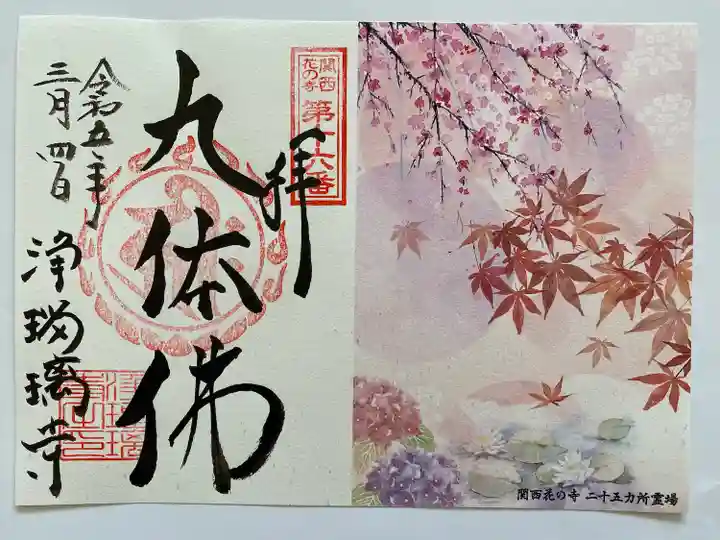 関西
花の寺
第十六番
奉拝
九体佛
令和五年
三月四日
浄瑠璃寺
関西花の寺 二十五カ所霊場